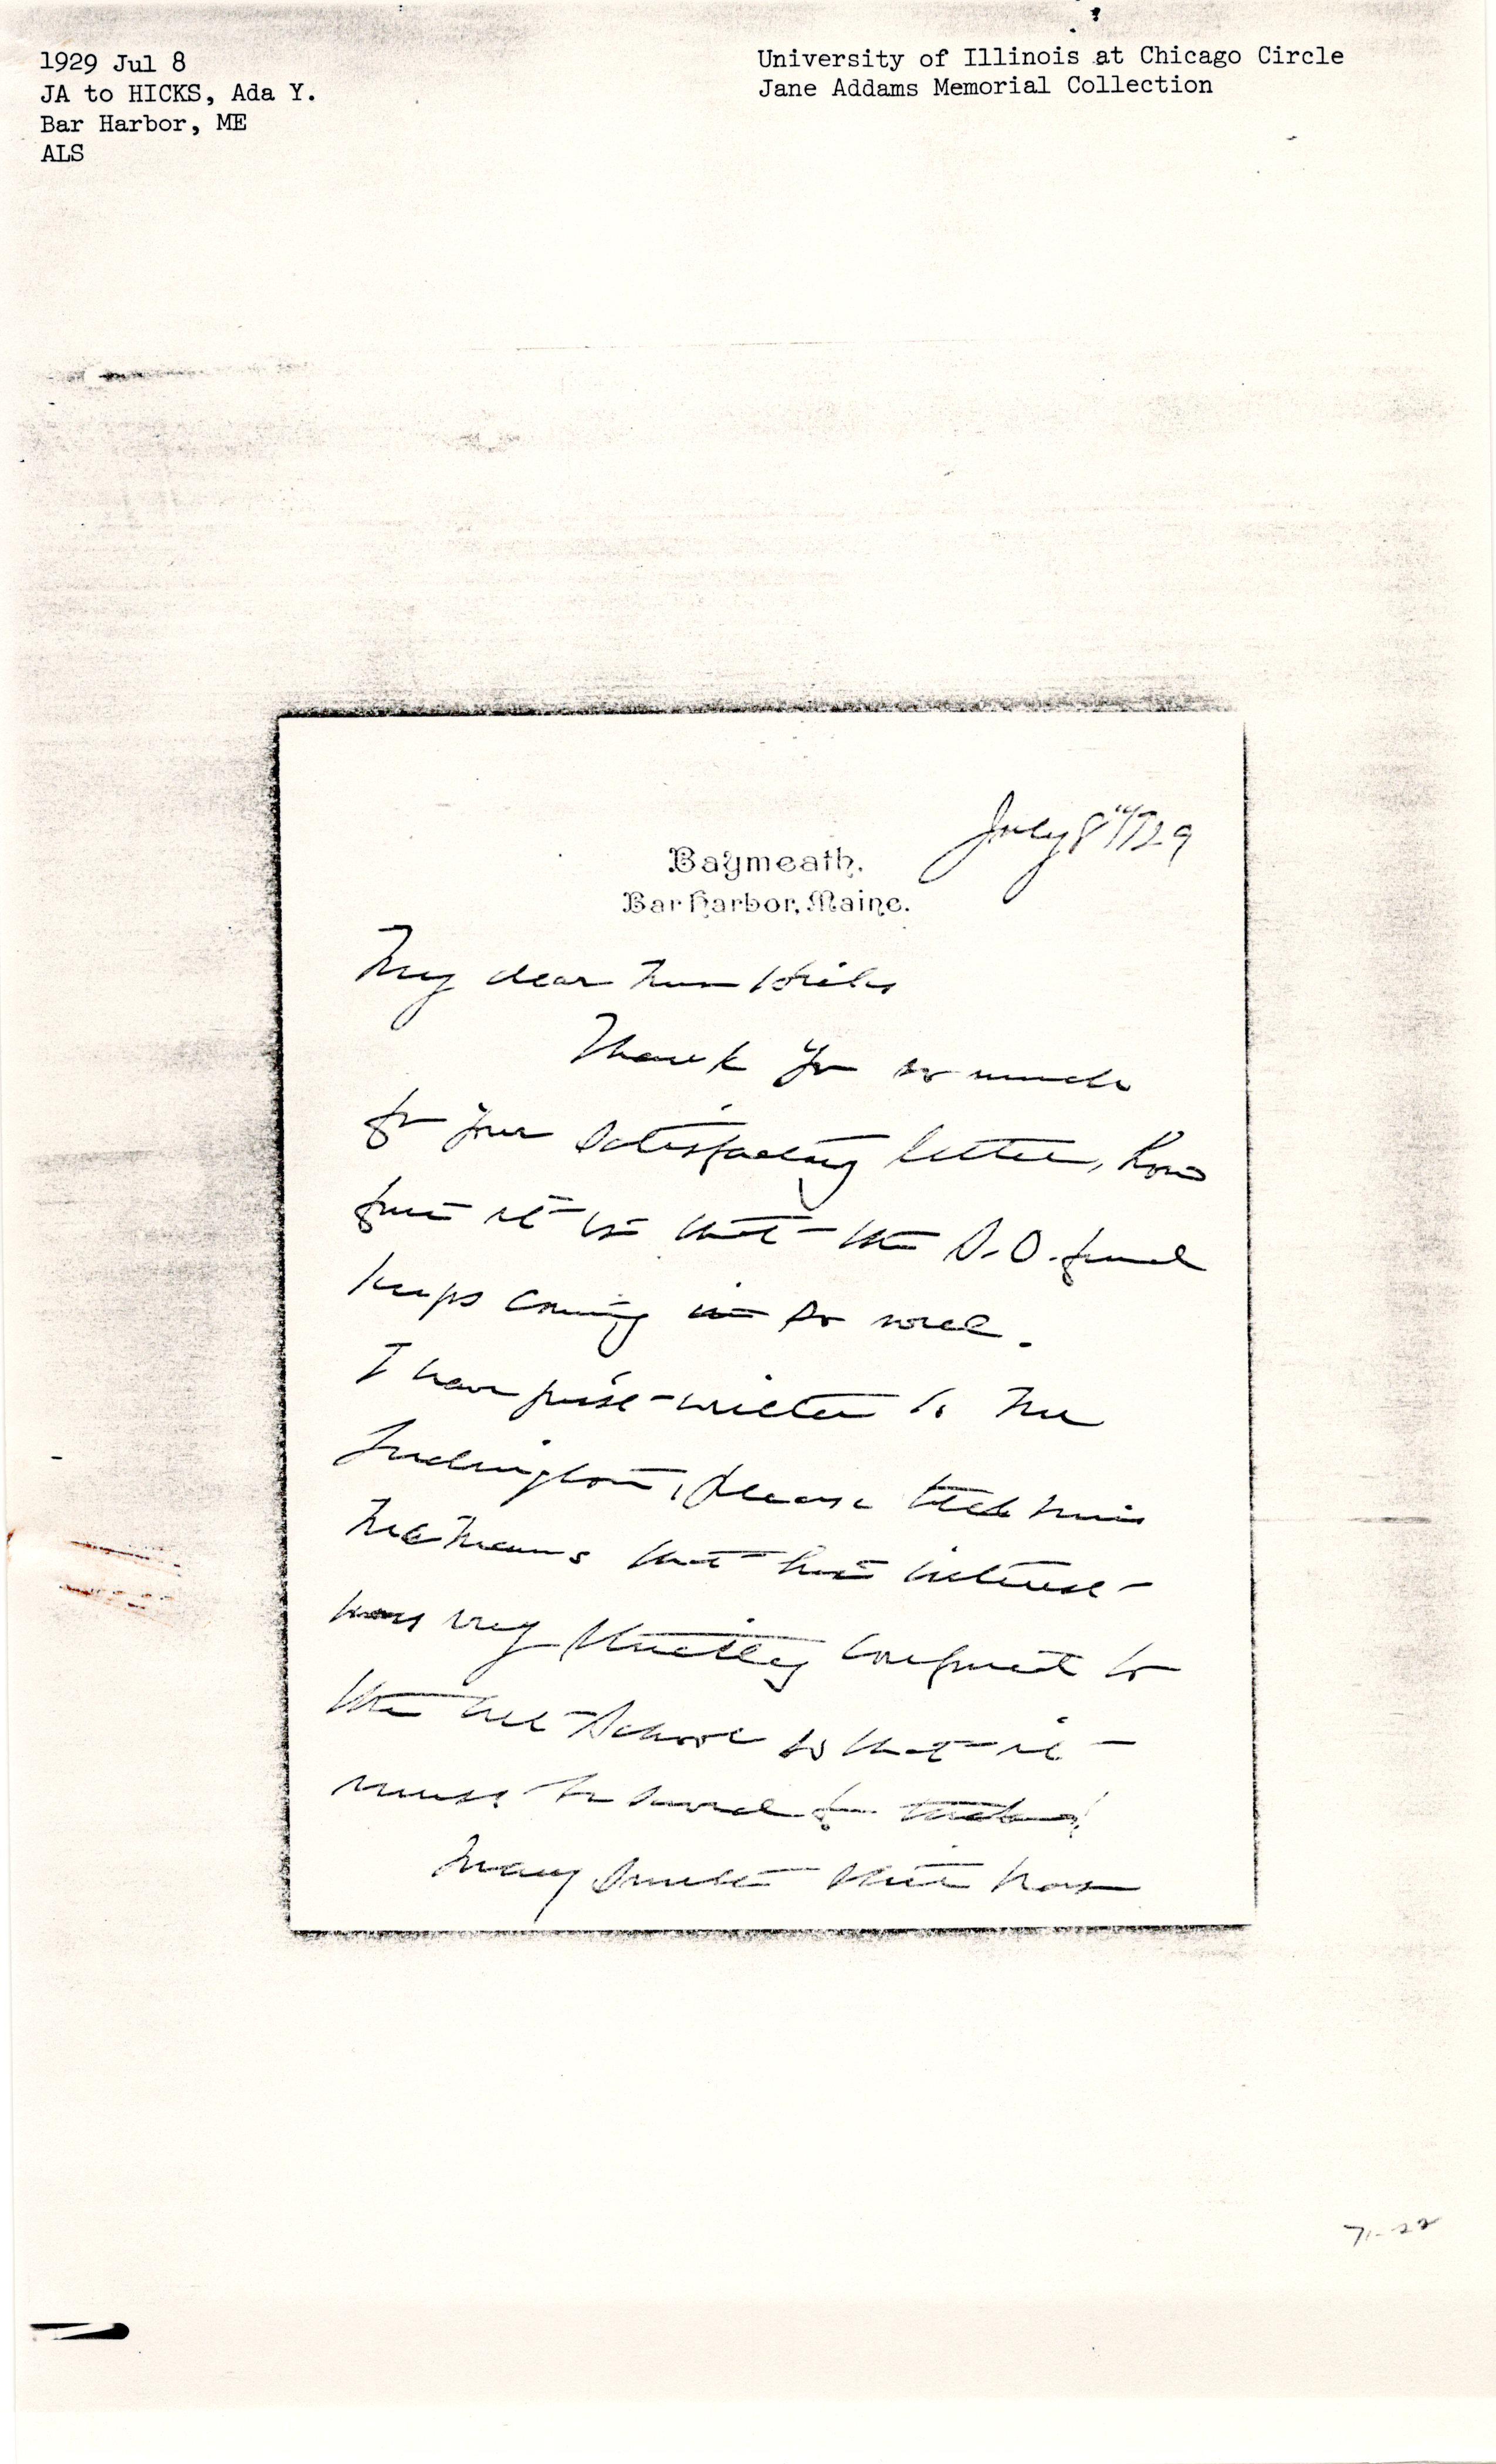 1929 Jul 8
JA to HICKS, Ada Y.
Bar Harbor, ME
ALS
University of Illinois at Chicago Circle
Jane Addams Memorial Collection
July 8" 1929
Baymeath,
Bar Harbor, Maine.
My dear Hicks
Thank you so much
for your satisfactory letter, how
fine it is that the S.O. fund
keeps coming in so well.
I have just written to
Ludington, please tell Miss
McManus that his interest
was very strictly confined to
the Art School so that it
must be saved for
Many Smith has
71-22